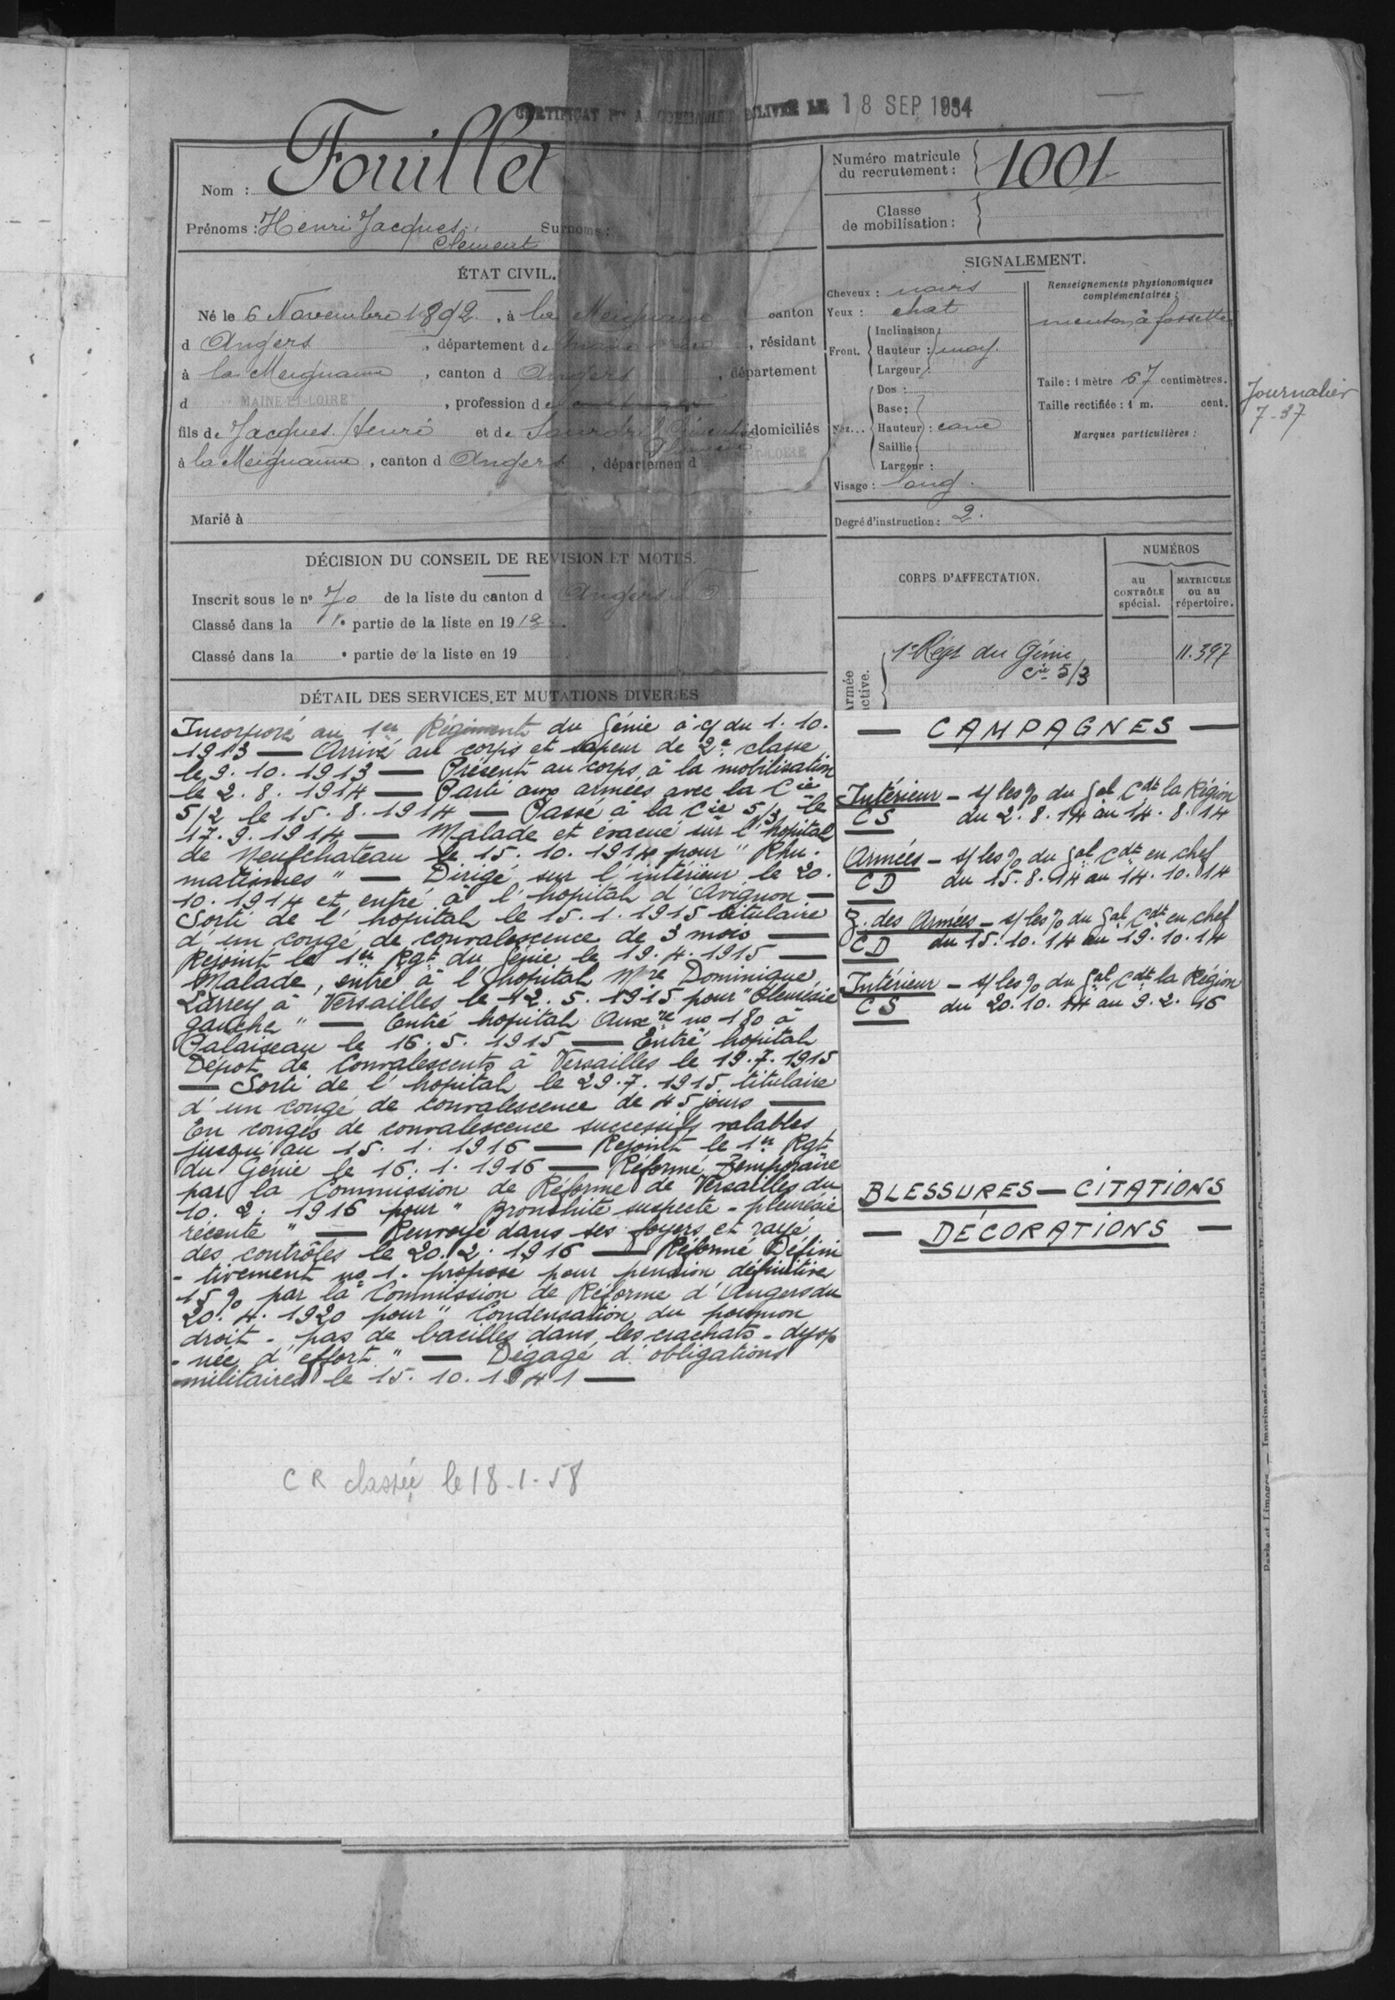 CERTIFICAT DÉLIVRÉ LE 18 SEP 1934
Nom : Fouillet
Prénoms : Henri Jacques Surnoms :
Clément
ÉTAT CIVIL.
Né le 6 Novembre 1892, à la Meignanne canton
d Angers, département de Maine et Loire, résidant
à la Meignanne, canton d Angers, département
d MAINE-ET-LOIRE, profession de
fils de Jacques Henri et de domiciliés
à la Meignanne, canton d Angers, départemen d
Marié à
DÉCISION DU CONSEIL DE REVISION ET MOTIFS.
Inscrit sous le n° 70 de la liste du canton d Angers N O
Classé dans la 1e partie de la liste en 1913
Classé dans la e partie de la liste en 19
DÉTAIL DES SERVICES ET MUTATIONS DIVERSES
Incorporé au 1er Régiment du Génie à c/ du 1. 10.
1913 — Arrivé au corps et sapeur de 2e classe
le 9. 10. 1913 — Présent au corps à la mobilisation
le 2. 8. 1914 — Parti aux armées avec la Cie
5/2 le 15. 8. 1914 — Passé à la Cie 5/3 le
17. 9. 1914 — Malade et évacué sur l'hôpital
de Neufchateau le 15. 10. 1914 pour "Rhu-
matismes" — Dirigé sur l'intérieur le 20.
10. 1914 et entré à l'hôpital d'Avignon —
Sorti de l'hôpital le 15. 1. 1915 titulaire
d'un congé de convalescence de 3 mois —
Rejoint le 1er Rgt du Génie le 19. 4. 1915 —
Malade, entré à l'hôpital Mre Dominique
Larrey à Versailles le 12. 5. 1915 pour "Pleurésie
gauche" — Entré hôpital Auxre no 180 à
Palaiseau le 16. 5. 1915 — Entré hôpital
Dépot de Convalescents à Versailles le 19. 7. 1915
— Sorti de l'hôpital le 29. 7. 1915 titulaire
d'un congé de convalescence de 45 jours —
En congés de convalescence successifs valables
jusqu'au 15. 1. 1916 — Rejoint le 1er Rgt
du Génie le 16. 1. 1916 — Réformé Temporaire
par la Commission de Réforme de Versailles du
10. 2. 1916 pour "Bronchite suspecte - pleurésie
récente" — Renvoyé dans ses foyers et rayé
des contrôles le 20. 2. 1916 — Réformé Défini
- tivement no 1. proposé pour pension définitive
15 % par la Commission de Réforme d'Angers du
20. 4. 1920 pour "Condensation du poumon
droit - pas de bacilles dans les crachats - dysp
- née d'effort" — Dégagé d'obligations
militaires le 15. 10. 1941 —
CR classée le 18-1-58
Numéro matricule
du recrutement : 1001
Classe
de mobilisation :
SIGNALEMENT.
Cheveux : noirs
Yeux : chat
Front. Inclinaison :
Hauteur : moy.
Largeur :
Nez... Dos :
Base :
Hauteur : cave
Saillie :
Largeur :
Visage : long.
Renseignements physionomiques
complémentaires :
menton à fossette
Taille : 1 mètre 67 centimètres.
Taille rectifiée : 1 m. cent.
Marques particulières :
Degré d'instruction : 2.
Journalier
7-37
CORPS D'AFFECTATION.
NUMÉROS
au
CONTRÔLE
spécial.
MATRICULE
ou au
répertoire.
Armée
active.
1er Régt du Génie
Cie 5/3
11.397
— CAMPAGNES —
Intérieur - s/ les % du Gal Cdt la Région
CS du 2. 8. 14 au 14. 8. 14
Armées - s/ les % du Gal Cdt en chef
CD du 15. 8. 14 au 14. 10. 14
Z. des Armées - s/ les % du Gal Cdt en chef
CD du 15. 10. 14 au 19. 10. 14
Intérieur - s/ les % du Gal Cdt la Région
CS du 20. 10. 14 au 9. 2. 16
BLESSURES — CITATIONS
— DÉCORATIONS —